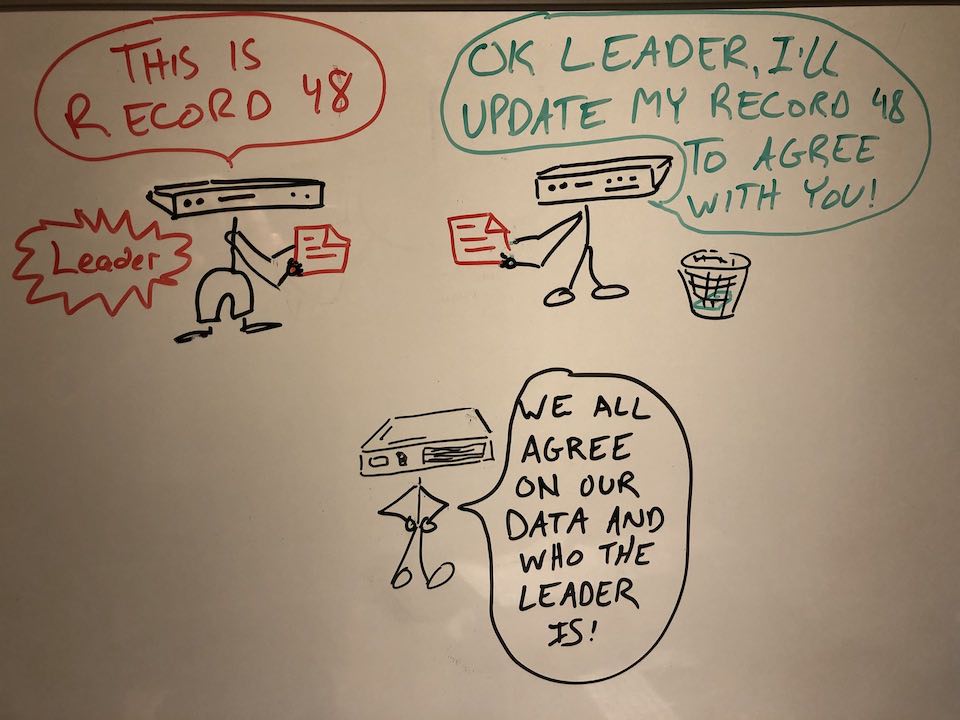 THIS IS
RECORD 48
Leader
OK LEADER, I'll
UPDATE MY RECORD 48
TO AGREE
WITH YOU!
WE ALL
AGREE
ON OUR
DATA AND
WHO THE
LEADER
IS!